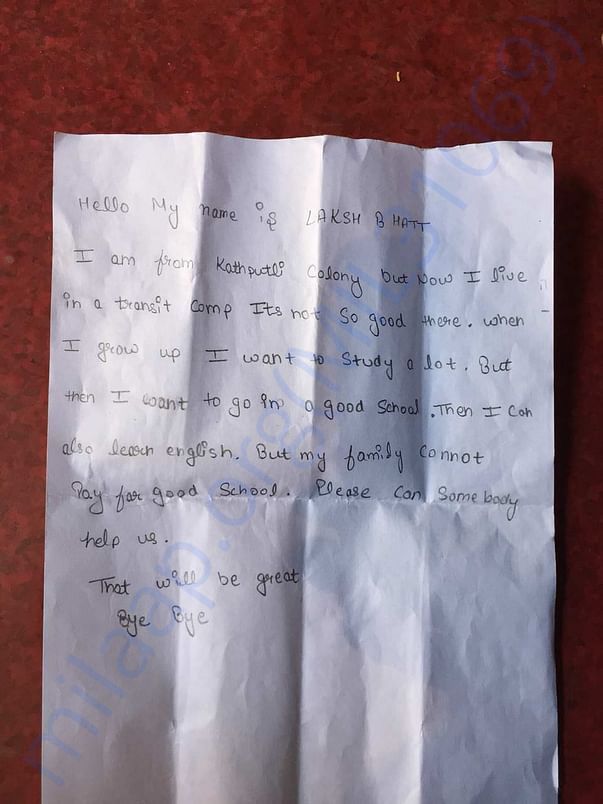 Hello My name is LAKSH BHATT
I am from Kathputli Colony but Now I live
in a transit Comp Its not So good there. when
I grow up I want to Study a lot. But
then I want to go in a good School. Then I Can
also learn english. But my family Connot
Pay for good School. Please Can Some body
help us.
That will be great
Bye Bye
milaap.org(MIL31069)